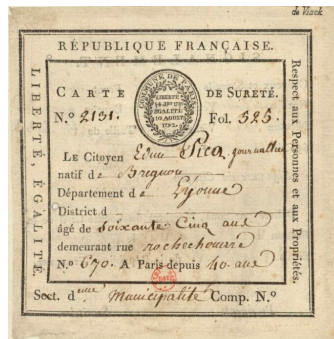 de Vinck
RÉPUBLIQUE FRANÇAISE.
LIBERTÉ, ÉGALITÉ.
Respect aux Personnes et aux Propriétés.
COMMUNE DE PARIS
LIBERTÉ
ÉGALITÉ
10 AOUST
1792.
CARTE DE SURETÉ.
N.º 2131. Fol. 325.
LE Citoyen Edme Pico journallier
natif de
Département de Lyonne
District d
âgé de Soixante Cinq ans
demeurant rue rochechouard
N.º 670. A Paris depuis 40. ans
Sect. d Municipalité Comp. N.º